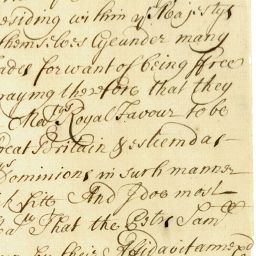 residing within yr Majestys
themselves Lye under many
ades for want of being ffree
raying therefore that they
Matys Royal Favour to be
reat Britain & esteemd as
Dominions in such manner
k fitt And I doe most
That the Petrs Saml
by their Affidavit annexd